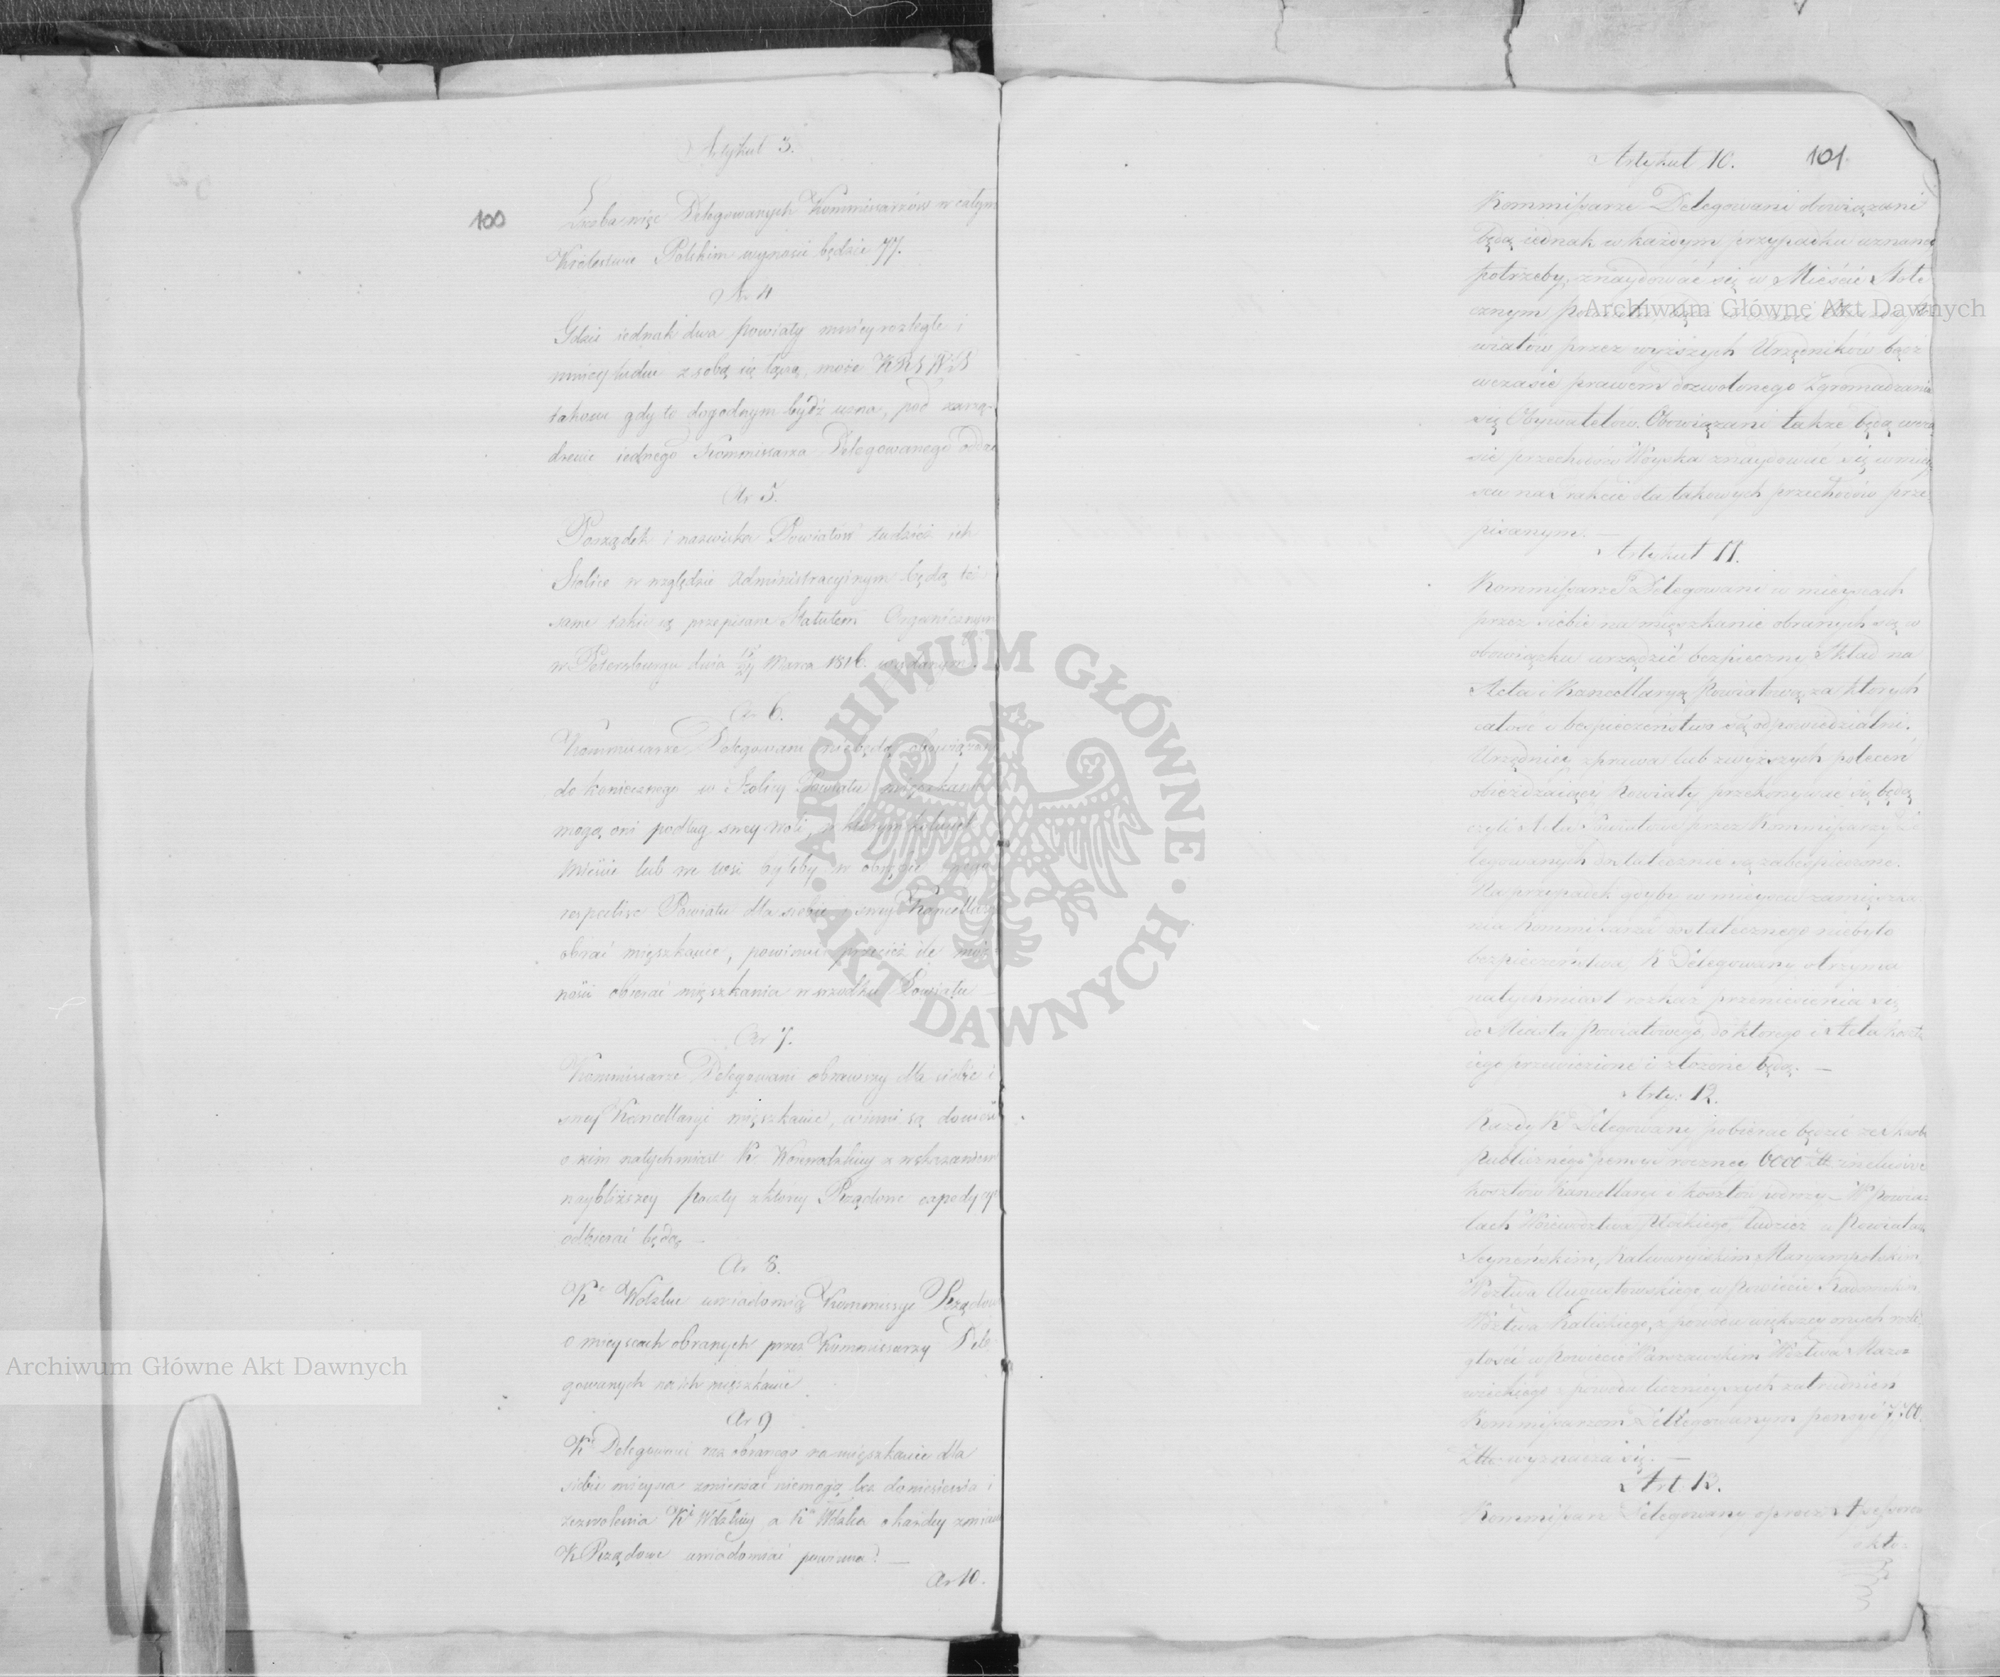 Artykuł 3.
100
Liczba więc Delegowanych Kommissarzów w całym
Królestwie Polskim wynosić będzie 77.
Ar 4
Gdzie iednak dwa powiaty mniey rozległe i
mniey ludne z sobą się łączą, może KRSWiP
takowe gdy to dogodnym bydź uzna, pod zarzą-
dzenie iednego Kommissarza Delegowanego oddać
Ar 5.
Porządek i nazwiska Powiatów tudzież ich
Stolice w względzie administracyinym będą też
same iakie są przepisane Statutem Organicznym
w Petersburgu dnia Marca 1816. wydanym.
Ar 6.
Kommissarze Delegowani niebędą obowiązani
do koniecznego w Stolicy Powiatu mięszkania
mogą oni podług swey woli, w którym kolwiek
Mieście lub we wsi byleby w obrębie swego
respective Powiatu dla siebie i swey Kancellaryi
obrać mięszkanie, powinni przecież ile moż-
ności obierać mięszkania w srzodku Powiatu
Ar 7.
Kommissarze Delegowani obrawszy dla siebie i
swey Kancellaryi mięszkanie, winni są donieść
o nim natychmiast K Woiewódzkiey z wskazaniem
naybliższey poczty z którey Rządowe expedycye
odbierać będą
Ar 8.
K Wdzkie uwiadomią Kommissye Rządowe
o mieyscach obranych przez Kommissarzy Dele
gowanych na ich mięszkanie
Ar 9
K Delegowani raz obranego na mięszkanie dla
siebie mieysca zmieniać niemogą bez doniesienia i
zezwolenia K Wdzkiey, a K Wdzka o każdey zmianie
K Rządowe uwiadomiać powinna. —
Ar 10.
Artykuł 10.
101
Kommissarze Delegowani obowiązani
będą iednak w każdym przypadku uznaney
potrzeby, znaydować się w Mieście Stołe
cznym powiatu,
wiatów przez wyższych Urzędników bądź
wczasie prawem dozwolonego Zgromadzania
się Obywatelów. Obowiązani także będą wcza
sie przechodów Woyska znaydować się w miey
scu na Trakcie dla takowych przechodów prze
pisanym. —
Artykuł 11.
Kommissarze Delegowani w mieyscach
przez siebie na mięszkanie obranych są w
obowiązku urządzić bezpieczny Skład na
Acta i Kancellaryą Powiatową, za których
całość i bezpieczeństwo są odpowiedzialni.
Urzędnicy z prawa lub z wyższych poleceń
obieżdżaiący Powiaty przekonywać się będą
czyli Acta Powiatowe przez Kommissarzy De
legowanych dostatecznie są zabezpieczone.
Na przypadek gdyby w mieyscu zamięszka
nia Kommissarza dostatecznego niebyło
bezpieczeństwa, K Delegowany otrzyma
natychmiast rozkaz przeniesienia się
do Miasta Powiatowego, do którego i Acta kosztem
iego przewiezione i złożone będą. —
Arty: 12.
Każdy K Delegowany pobierać będzie ze skarbu
publicznego pensyi roczney 6000 Zł: inclusive
kosztów Kancellaryi i kosztów podróży — W Powia-
tach Woiewództwa Płockiego, tudzież w Powiatach
Seyneńskim, Kalwaryiskim Maryampolskim
Wdztwa Augustowskiego w Powiecie Radomskim
Wdztwa Kaliskiego, z powodu większey onych rozle
głości w Powiecie Warszawskim Wdztwa Mazo-
wieckiego z powodu licznieyszych zatrudnień
Kommissarzom Dellegowanym pensyi
Złto wyznacza się. —
Art. 13.
Kommissarz Delegowany oprócz Assessora